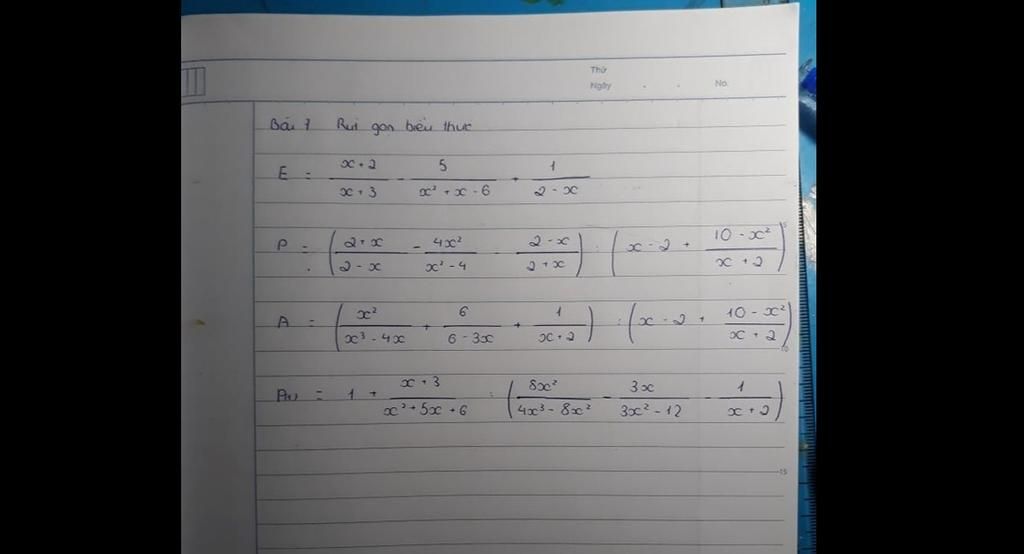 Thứ
Ngày . . No.
Bài 1 Rút gọn biểu thức
E = (x + 2)/(x + 3) - 5/(x² + x - 6) + 1/(2 - x)
P = ((2 + x)/(2 - x) - 4x²/(x² - 4) - (2 - x)/(2 + x)) : (x - 2 + (10 - x²)/(x + 2))
5
A = (x²/(x³ - 4x) + 6/(6 - 3x) + 1/(x + 2)) : (x - 2 + (10 - x²)/(x + 2))
10
= 1 + (x + 3)/(x² + 5x + 6) : (8x²/(4x³ - 8x²) - 3x/(3x² - 12) - 1/(x + 2))
15